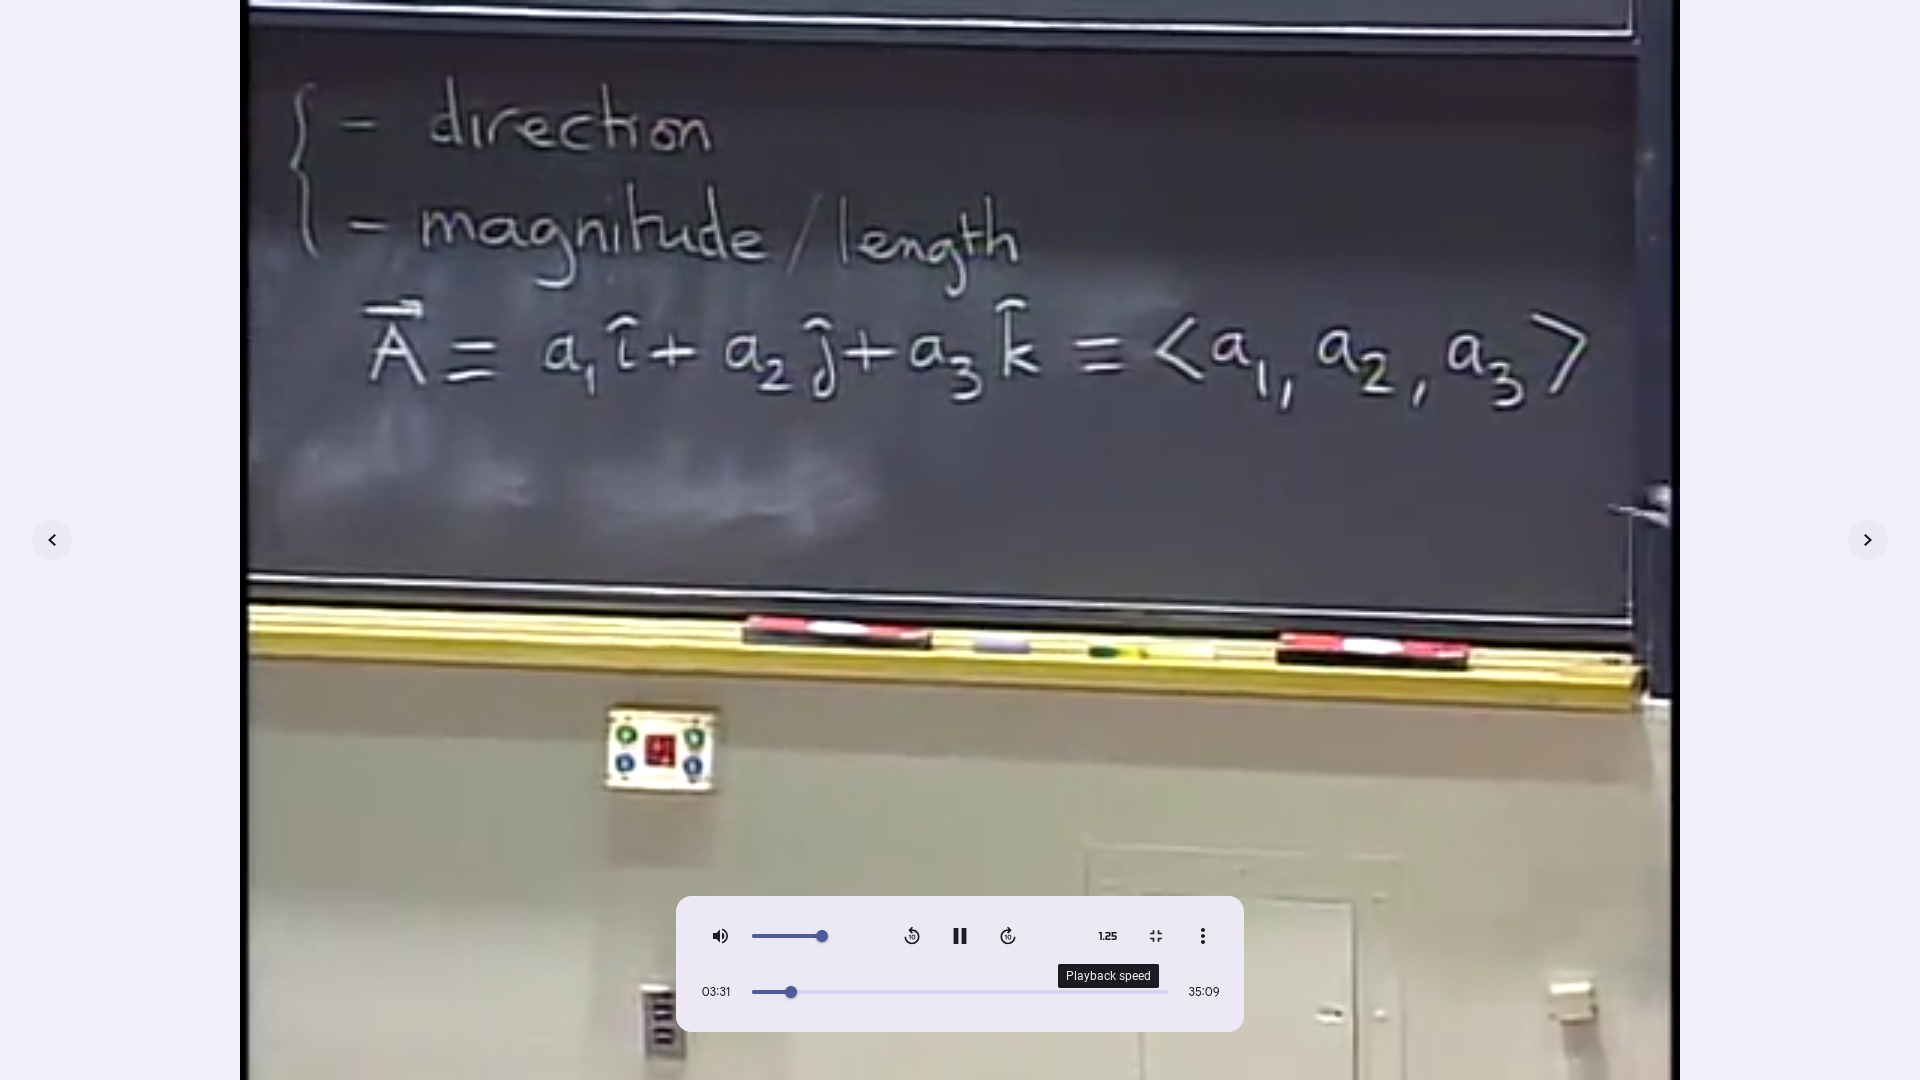 - direction
- magnitude / length
A⃗ = a₁î + a₂ĵ + a₃k̂ = <a₁, a₂, a₃>
10
10
1.25
Playback speed
03:31
35:09